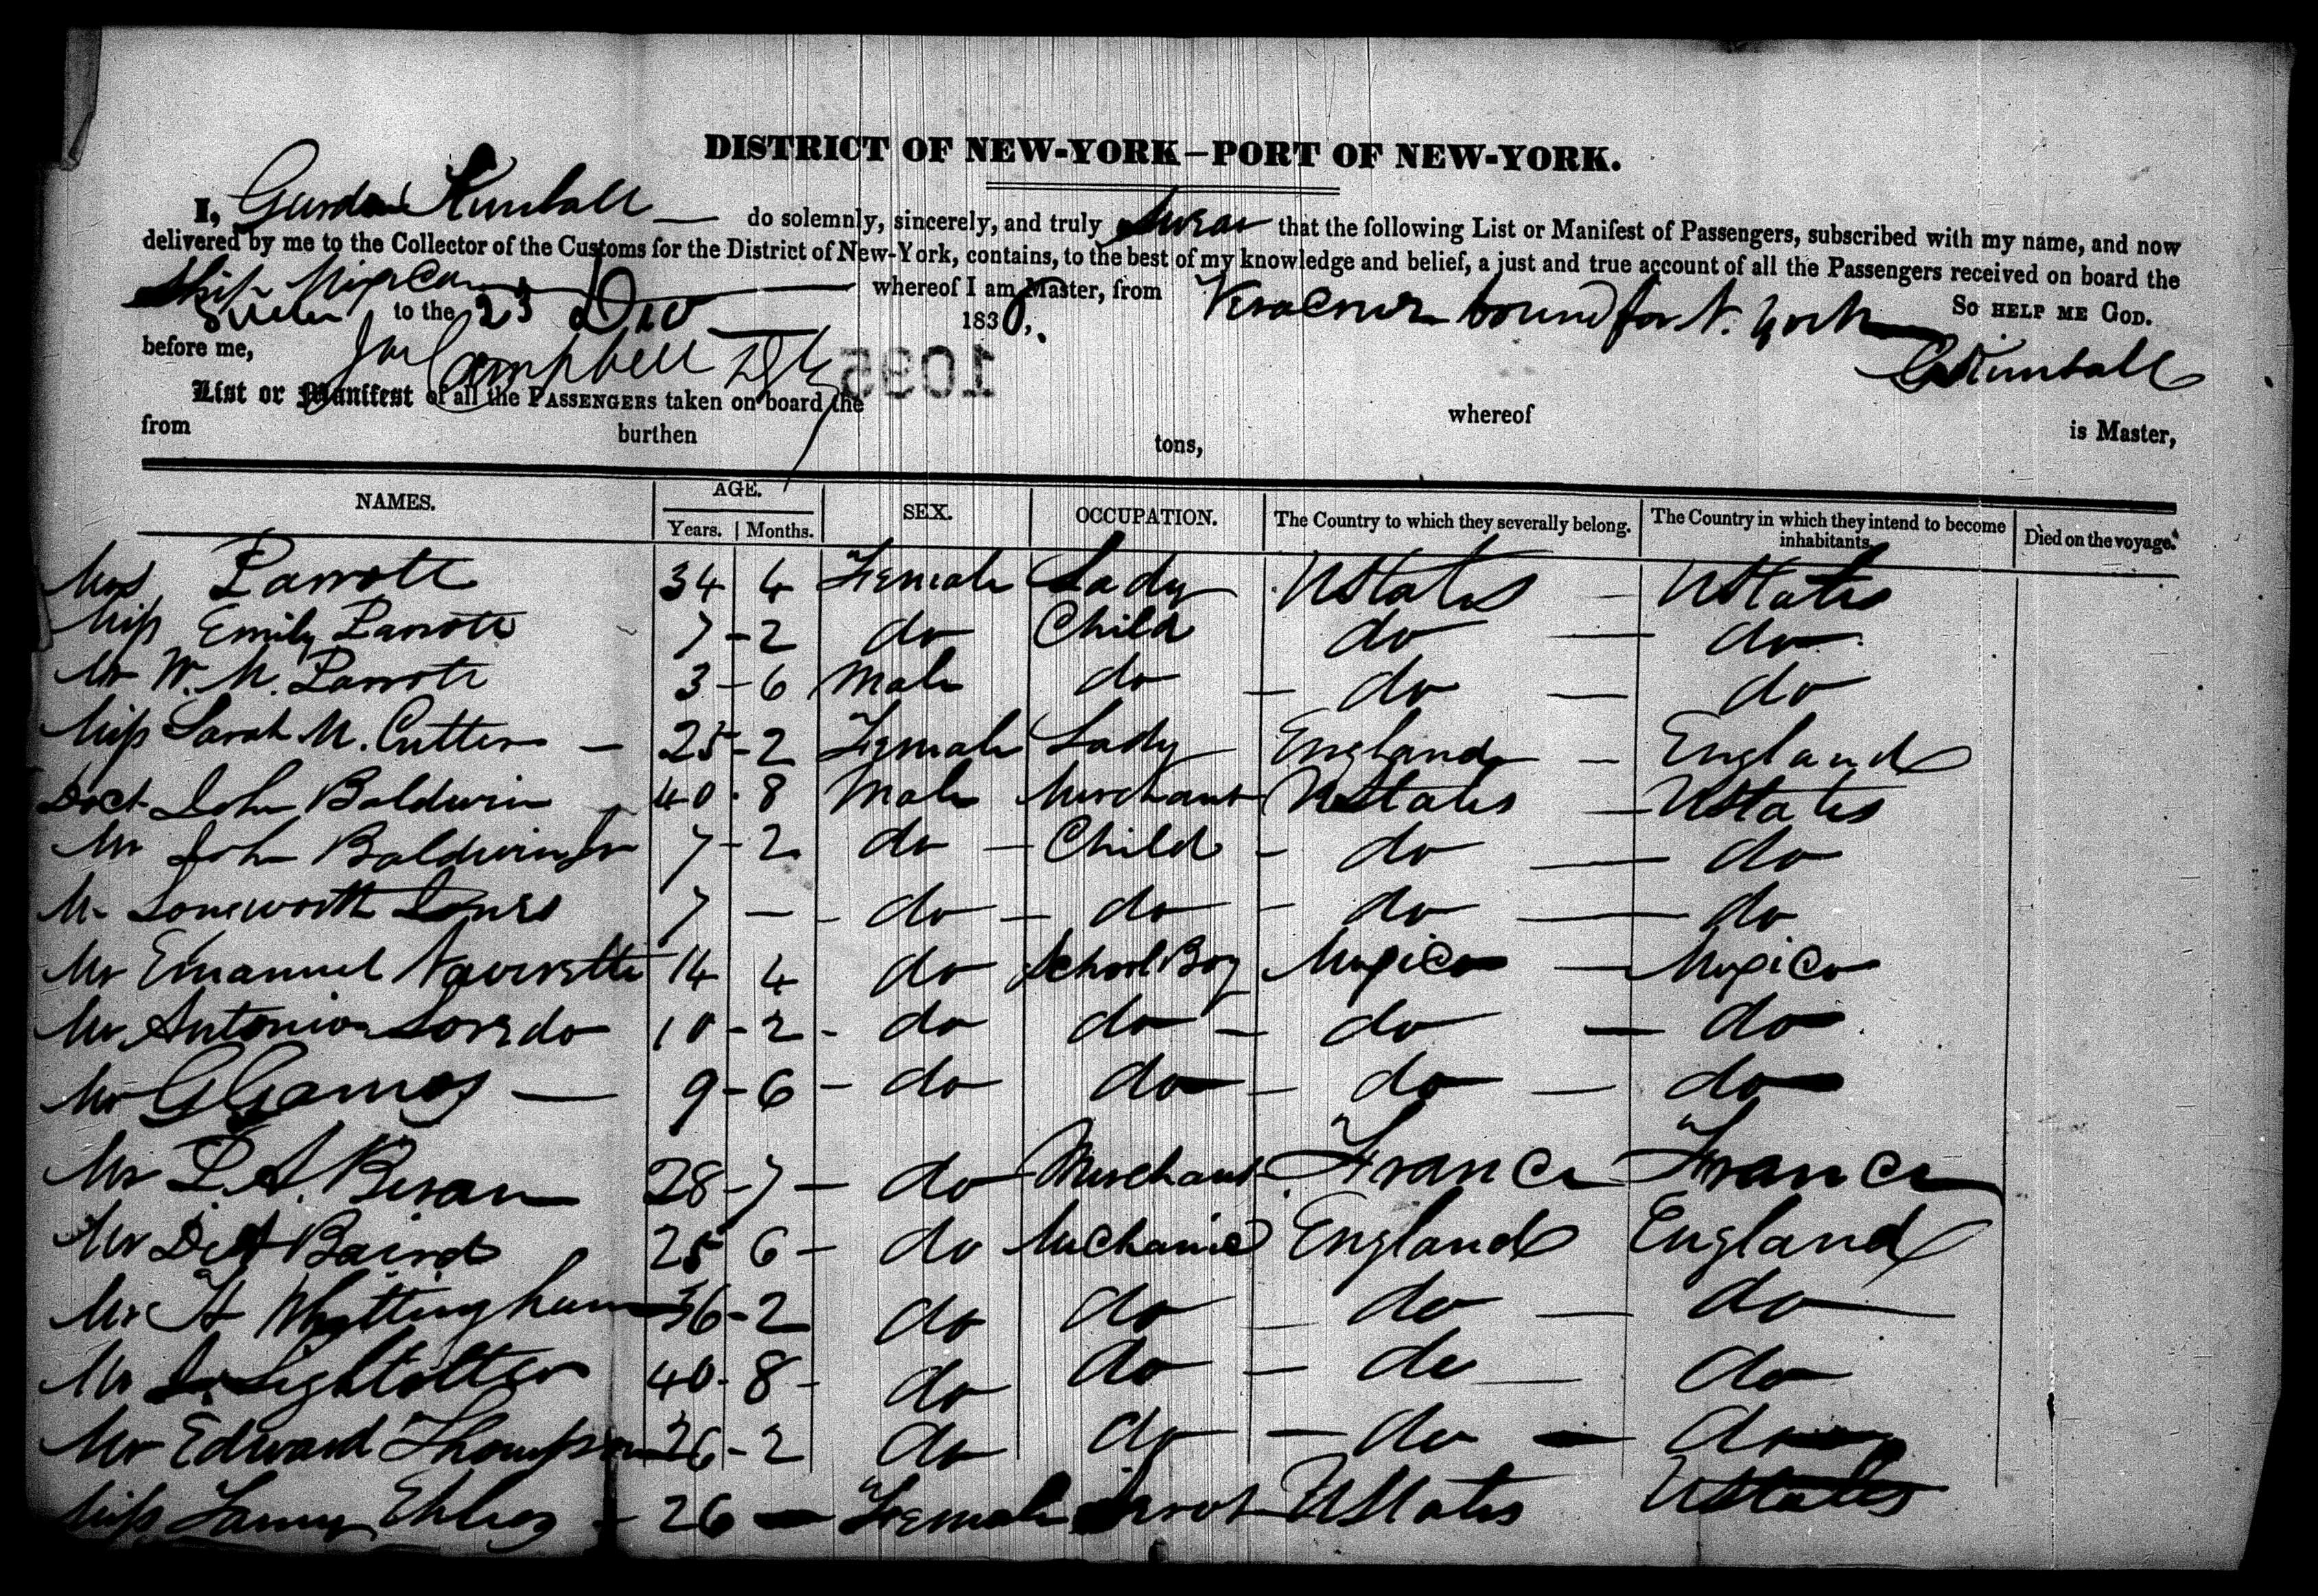 DISTRICT OF NEW-YORK—PORT OF NEW-YORK.
I, Gurdon Kimball do solemnly, sincerely, and truly swear that the following List or Manifest of Passengers, subscribed with my name, and now
delivered by me to the Collector of the Customs for the District of New-York, contains, to the best of my knowledge and belief, a just and true account of all the Passengers received on board the
Ship Mexican whereof I am Master, from Veracruz bound for N. York
to the 23 Dec 1830. So HELP ME GOD.
before me, Campbell G Kimball
1095
List or Manifest of all the PASSENGERS taken on board the whereof is Master,
from burthen tons,
NAMES. AGE. Years. Months. SEX. OCCUPATION. The Country to which they severally belong. The Country in which they intend to become inhabitants. Died on the voyage.
Mrs Parrott 34 4 Female Lady UStates — UStates
Miss Emily Parrott 7 - 2 do Child do — do
Mr W. M. Parrott 3 - 6 Male do — do — do
Miss Sarah M. Cutter — 25 - 2 Female Lady England — England
Doct John Baldwin 40 - 8 Male Merchant UStates — UStates
Mr John Baldwin Jr 7 - 2 do — Child — do — do
Mr Jones 7 — do — do — do — do
Mr Emanuel 14 4 do School Boy Mexico — Mexico
Mr Antonio 10 - 2 - do do — do — do
Mr G — 9 - 6 — do do — do — do
Mr 28 - 7 — do Merchant France France
Mr Baird 25 6 — do Mechanic England England
Mr H Whyttingham 36 - 2 do do — do — do
Mr 40 - 8 - do do — do — do
Mr Edward Thompson 26 - 2 do do — do — do
Miss Fanny — 26 — Female UStates UStates